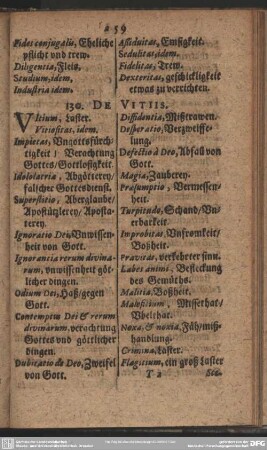 259
Fides conjugalis, Eheliche
pflicht vnd trew.
Diligentia, Fleis.
Studium, idem.
Industria idem.
Assiduitas, Emsigkeit.
Sedulitas, idem.
Fidelitas, Trew.
Dexteritas, geschickligkeit
etwas zu verrichten.
130. DE VITIIS.
Vitium, Laster.
Vitiositas, idem.
Impietas, Vngottsfürch-
tigkeit / Verachtung
Gottes / Gottlosigkeit.
Idololatria, Abgötterey /
falscher Gottesdienst.
Superstitio, Aberglaube /
Apostützlerey / Aposta-
terey.
Ignoratio Dei, Vnwissen-
heit von Gott.
Ignorancia rerum divina-
rum, vnwissenheit göt-
licher dingen.
Odium Dei, Haß / gegen
Gott.
Contemptus Dei & rerum
divinarum, verachtung
Gottes vnd göttlicher
dingen.
Dubitatio de Deo, Zweifel
von Gott.
Diffidentia, Mistrawen.
Desperatio, Verzweiffe-
lung.
Defectio à Deo, Abfall von
Gott.
Magia, Zauberey.
Præsumptio, Vermessen-
heit.
Turpitudo, Schand / Vn-
erbarkeit.
Improbitas, Vnfromkeit /
Boßheit.
Pravitas, verkehrter sinn.
Labes animi, Befleckung
des Gemüths.
Malitia, Boßheit.
Maleficium, Missethat /
Vbelthat.
Noxa, & noxia, Fäh / miß-
handlung.
Crimina, Laster.
Flagitium, ein groß Laster
T 2